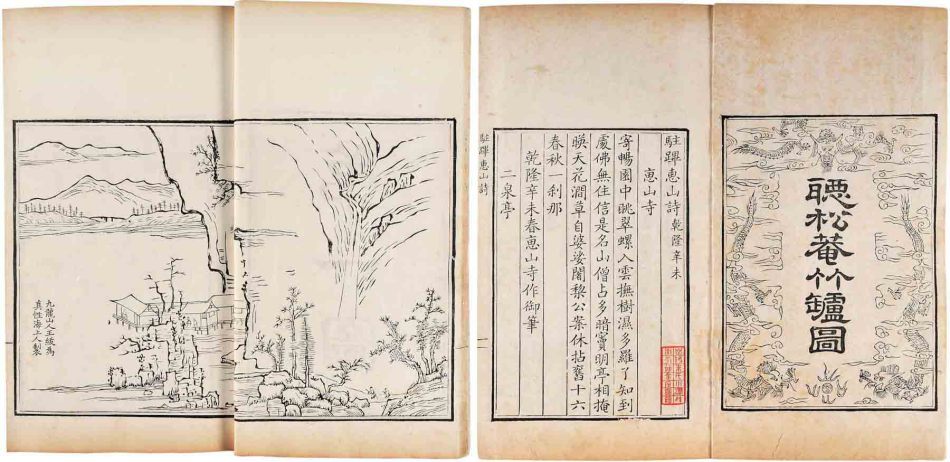 聽松菴竹罏圖
駐蹕惠山詩 乾隆辛未
惠山寺
寄暢園中眺翠螺入雲撫樹濕多羅了知到
處佛無住信是名山僧占多暗竇明亭相掩
暎天花澗草自婆娑闍黎公案休拈舊十六
春秋一刹那
乾隆辛未春惠山寺作御筆
二泉亭
駐蹕惠山詩
九龍山人王紱為
真性海上人製